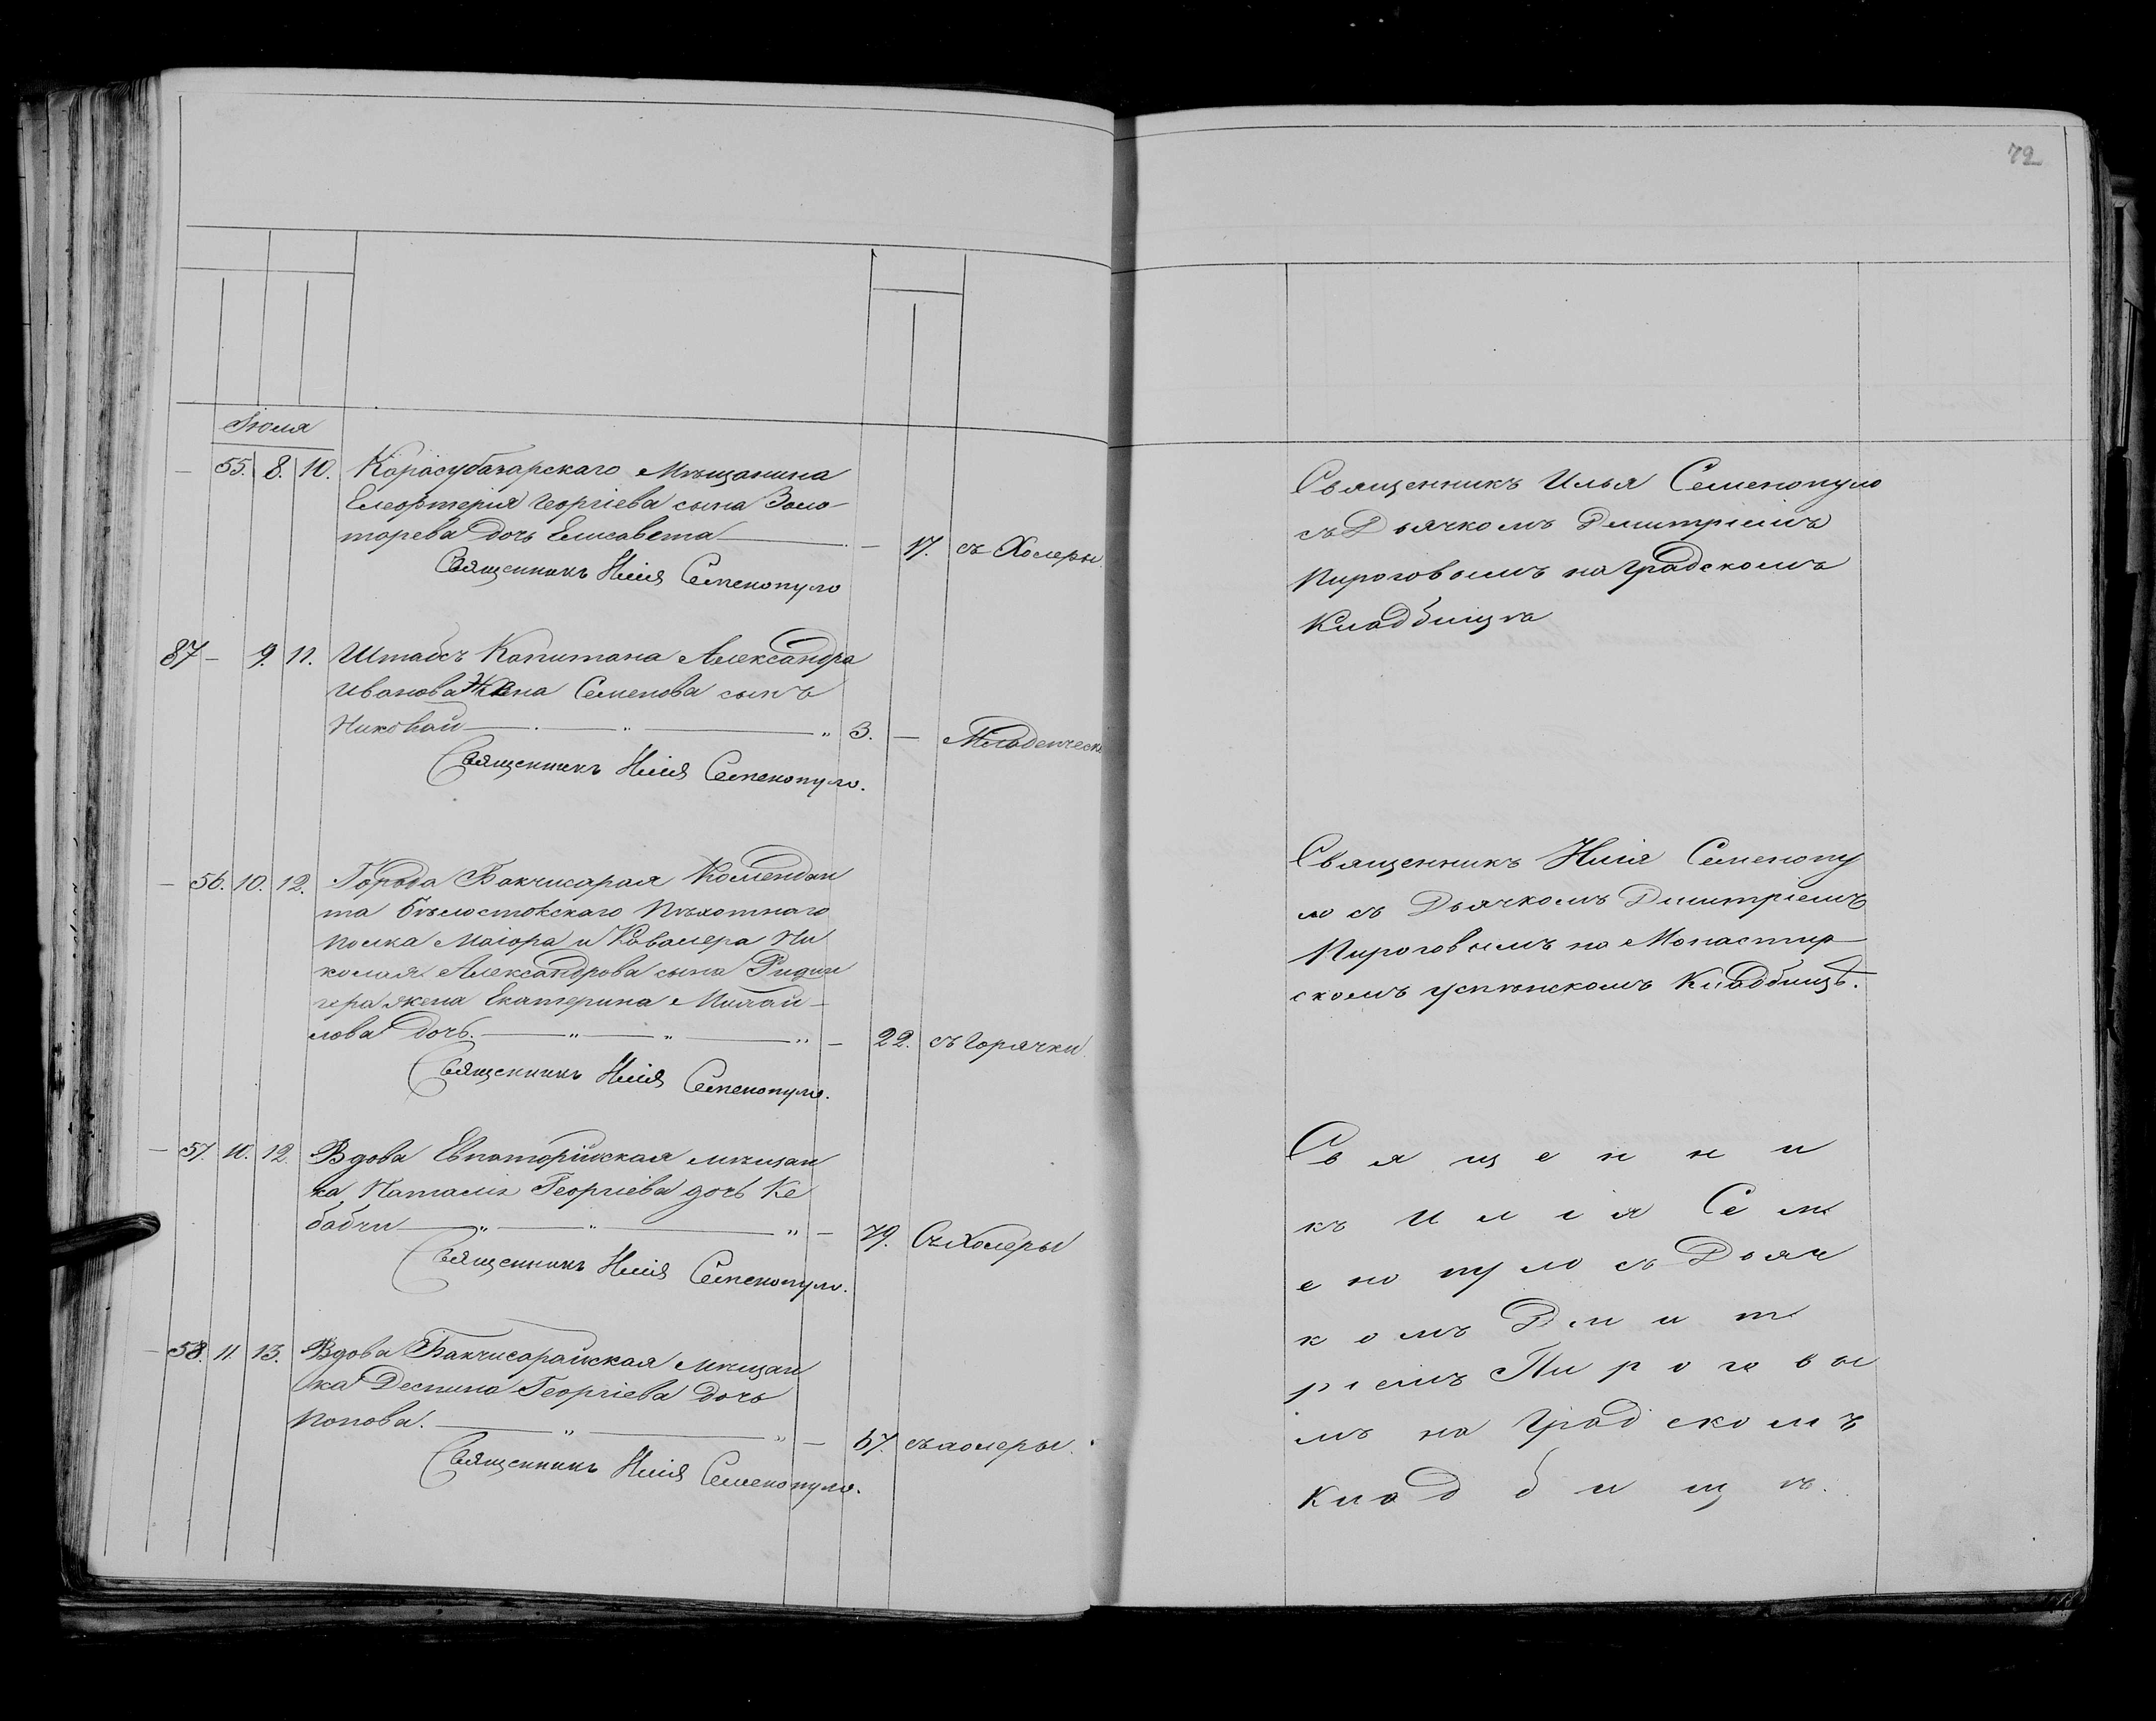 72
Іюля
— 55. 8. 10. Карасубазарскаго Мѣщанина
Елеофтерія Георгіева сына Золо-
тарева дочь Елисавета — 17. съ Холеры.
Священникъ Илія Семенопуло
87 — 9. 11. Штабсъ Капитана Александра
Иванова сына Семенова сынъ
Николай — 3. — Младенческ
Священникъ Илія Семенопуло.
— 56. 10. 12. Города Бакчисарая Комендан
та Бѣлостокскаго Пѣхотнаго
полка Маіора и Кавалера Ни
колая Александрова сына
гера жена Екатерина Михай-
лова дочь. — 22. съ горячки.
Священникъ Илія Семенопуло.
— 57. 10. 12. Вдова Евпаторійская мѣщан
ка Наталія Георгіева дочь Ке
бабчи — 79. Съ Холеры
Священникъ Илія Семенопуло.
— 58. 11. 13. Вдова Бакчисарайская мѣщан
ка Деспина Георгіева дочь
Попова. — 67. съ холеры.
Священникъ Илія Семенопуло.
Священникъ Илья Семенопуло
съ Дьячкомъ Димитріемъ
Пироговымъ на градскомъ
Кладбищѣ
Священникъ Илія Семенопу
ло съ Дьячкомъ Димитріемъ
Пироговымъ на Монастир
скомъ успѣнскомъ Кладбищѣ.
Священни
къ Илія Сем
енопуло съ Дьяч
комъ Димит
ріемъ Пирогов
ымъ на градскомъ
Кладбищѣ.